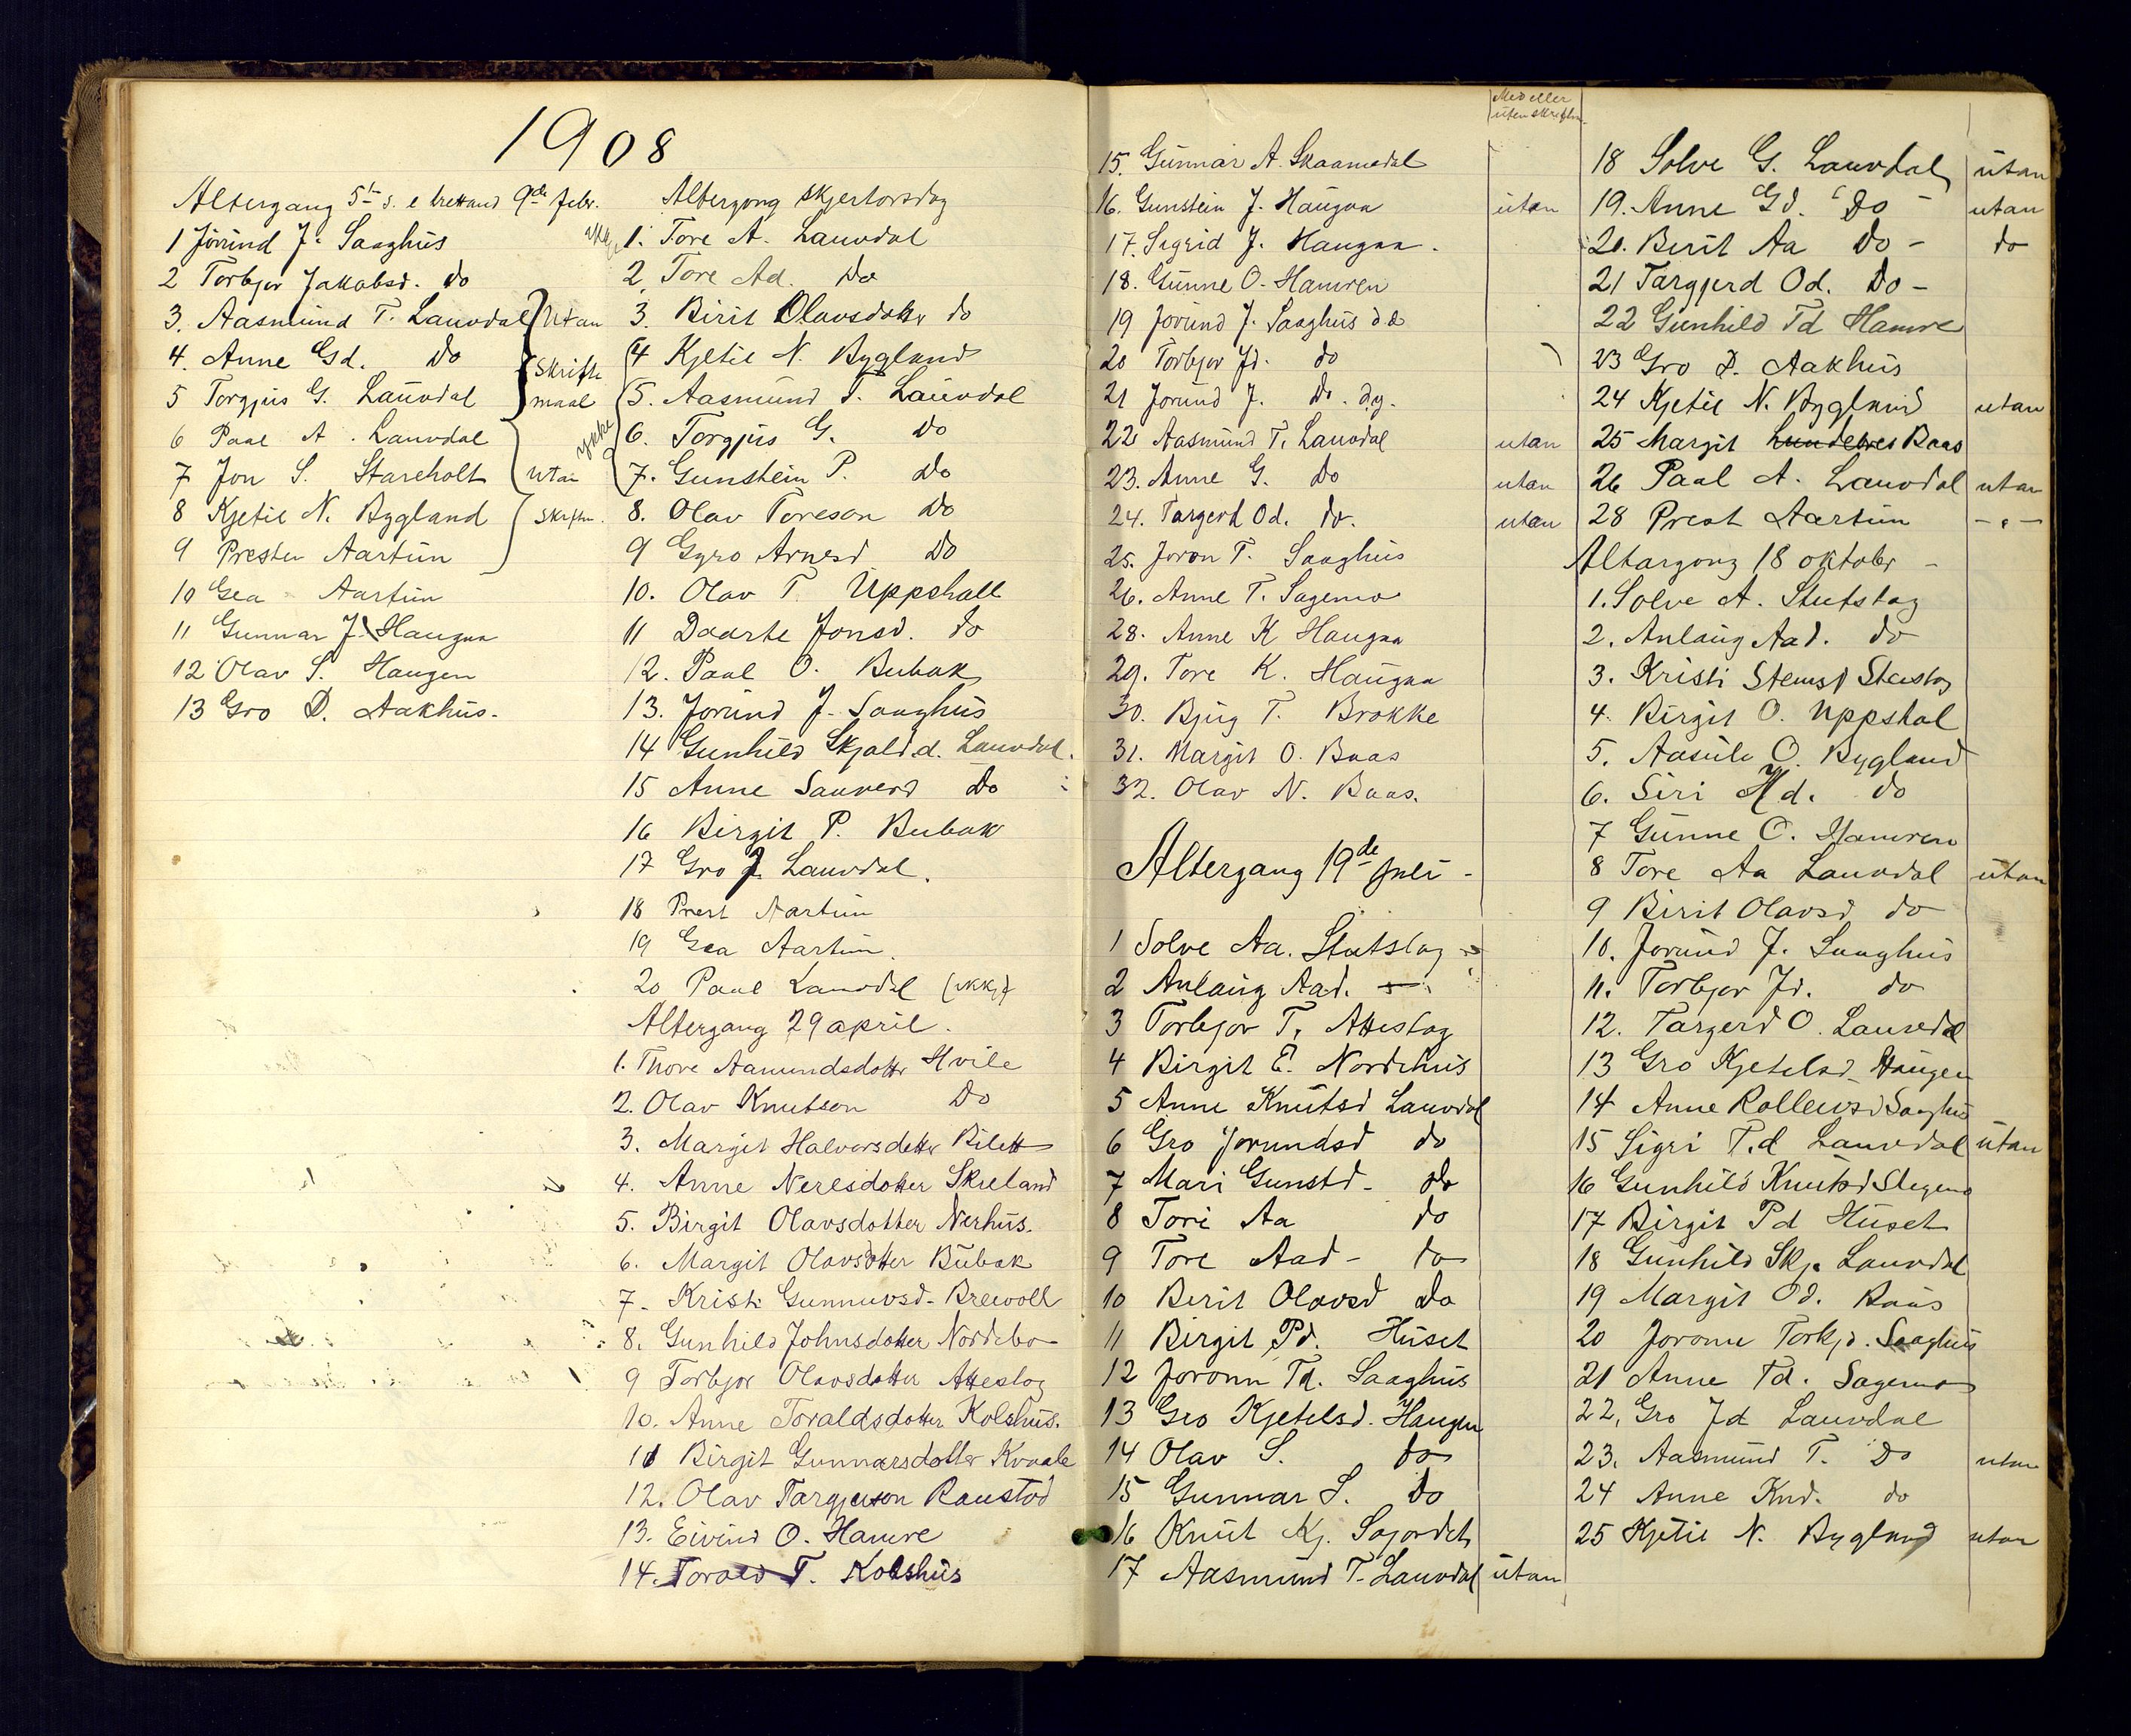 1908
Altergang 5t s. e trettand 9de febr.
1 Jörund J. Saaghus
2 Torbjor Jakobsd. Do
3. Aasmund T. Lauvdal } Utan
4. Anne Gd. Do Skrifte
5 Torgjus G. Lauvdal maal
6 Paal A. Lauvdal
7 Jon S. Stareholt utan
8 Kjetil N. Bygland Skriftm.
9 Presten Aartun
10 Gea Aartun
11 Gunnar J. Haugaa
12 Olav S. Haugen
13 Gro D. Aakhus.
Altergong skjertorsdag
1. Tore A. Lauvdal
2. Tore Ad. Do
3. Birit Olavsdotter do
4 Kjetil N. Bygland
5. Aasmund T. Lauvdal
ykke 6. Torgjus G. Do
7. Gunstein P. Do
8. Olav Toreson Do
9 Gyro Arnesd Do
10. Olav T. Uppshall
11 Daarte Jonsd. do
12. Paal O. Bubak
13. Jorund J. Saaghus
14 Gunhild Skjald.d. Lauvdal.
15 Anne Sauverd Do
16 Birgit P. Bubak
17 Gro J. Lauvdal.
18 Prest Aartun
19 Gea Aartun.
20 Paal Lauvdal (ikkje)
Altergang 29 april.
1. Thore Aamundsdottr Hvile
2. Olav Knutson Do
3. Margit Halvorsdotter Bilett
4. Anne Nerisdotter Skreland
5. Birgit Olavsdotter Nerhus.
6. Margit Olavsdotter Bubak
7. Kristi Gunnuvsd. Breivoll
8. Gunhild Johnsdotter Nordebo
9 Torbjor Olavsdotter Atteslog
10. Anne Toraldsdotter Kolshus.
11 Birgit Gunnarsdotter Kvaale
12. Olav Targjerson Raustad
13. Eivind O. Hamre
14. Torald T. Kolshus
Med eller
uten skriftm.
15. Gunnar A. Skaamedal
16. Gunstein J. Haugaa utan
17. Sigrid J. Haugaa.
18. Gunne O. Hamren
19 Jorund J. Saaghus d e
20 Torbjor Jd. do
21 Jorund J. Do. d.y.
22 Aasmund T. Lauvdal utan
23. Anne G. Do utan
24. Targerd Od. do. utan
25. Joron T. Saaghus
26. Anne T. Sagemo
28. Anne K Haugaa
29. Tore K. Haugaa
30. Bjug T. Brokke
31. Margit O. Baas
32. Olav N. Baas.
Altergang 19de juli
1 Solve Aa. Stutslag
2 Anlaug Aad.
3 Torbjor T. Atteslog
4 Birgit E. Nordehus
5 Anne Knutsd Lauvdal
6 Gro Jorundsd do
7 Mari Gunstd. do
8 Tori Aa do
9 Tore Aad - do
10 Berit Olavsd Do
11 Birgit Pd. Huset
12 Joronn Td. Saaghus
13 Gro Kjetelsd. Haugen
14 Olav S. do
15 Gunnar S. Do
16 Knut Kj. Sagordet
17 Aasmund T. Lauvdal utan
18 Solve G. Lauvdal utan
19. Anne Gd. Do utan
20. Berit Aa Do - do
21 Targjerd Od. Do -
22 Gunhild Td Hamre
23 Gro D. Aakhus
24 Kjetil N. Bygland utan
25 Margit Baas
26 Paal A. Lauvdal utan
28 Prest Aartun - " -
Altargong 18 oktober -
1. Solve A. Stutslag
2. Anlaug Aad. do
3. Kristi
4. Birgit O. Uppstal
5. Aasule O. Bygland
6. Siri Hd. do
7 Gunne O. Hamren
8 Tore Aa Lauvdal utan
9 Birit Olavsd do
10. Jorund J. Saaghus
11. Torbjor Jd. do
12. Targerd O. Lauvdal
13 Gro Kjetelsd. Haugen
14 Anne Rolleivsd Saaghus
15 Sigri T.d Lauvdal utan
16 Gunhild Knutsd
17 Birgit Pd Huset
18 Gunhild Skj. Lauvdal
19 Margit Od. Baas
20 Joronn Torkjd. Saaghus
21 Anne Td. Sagemo
22. Gro Jd Lauvdal
23. Aasmund T. Do utan
24 Anne Knd. do
25 Kjetil N. Bygland utan